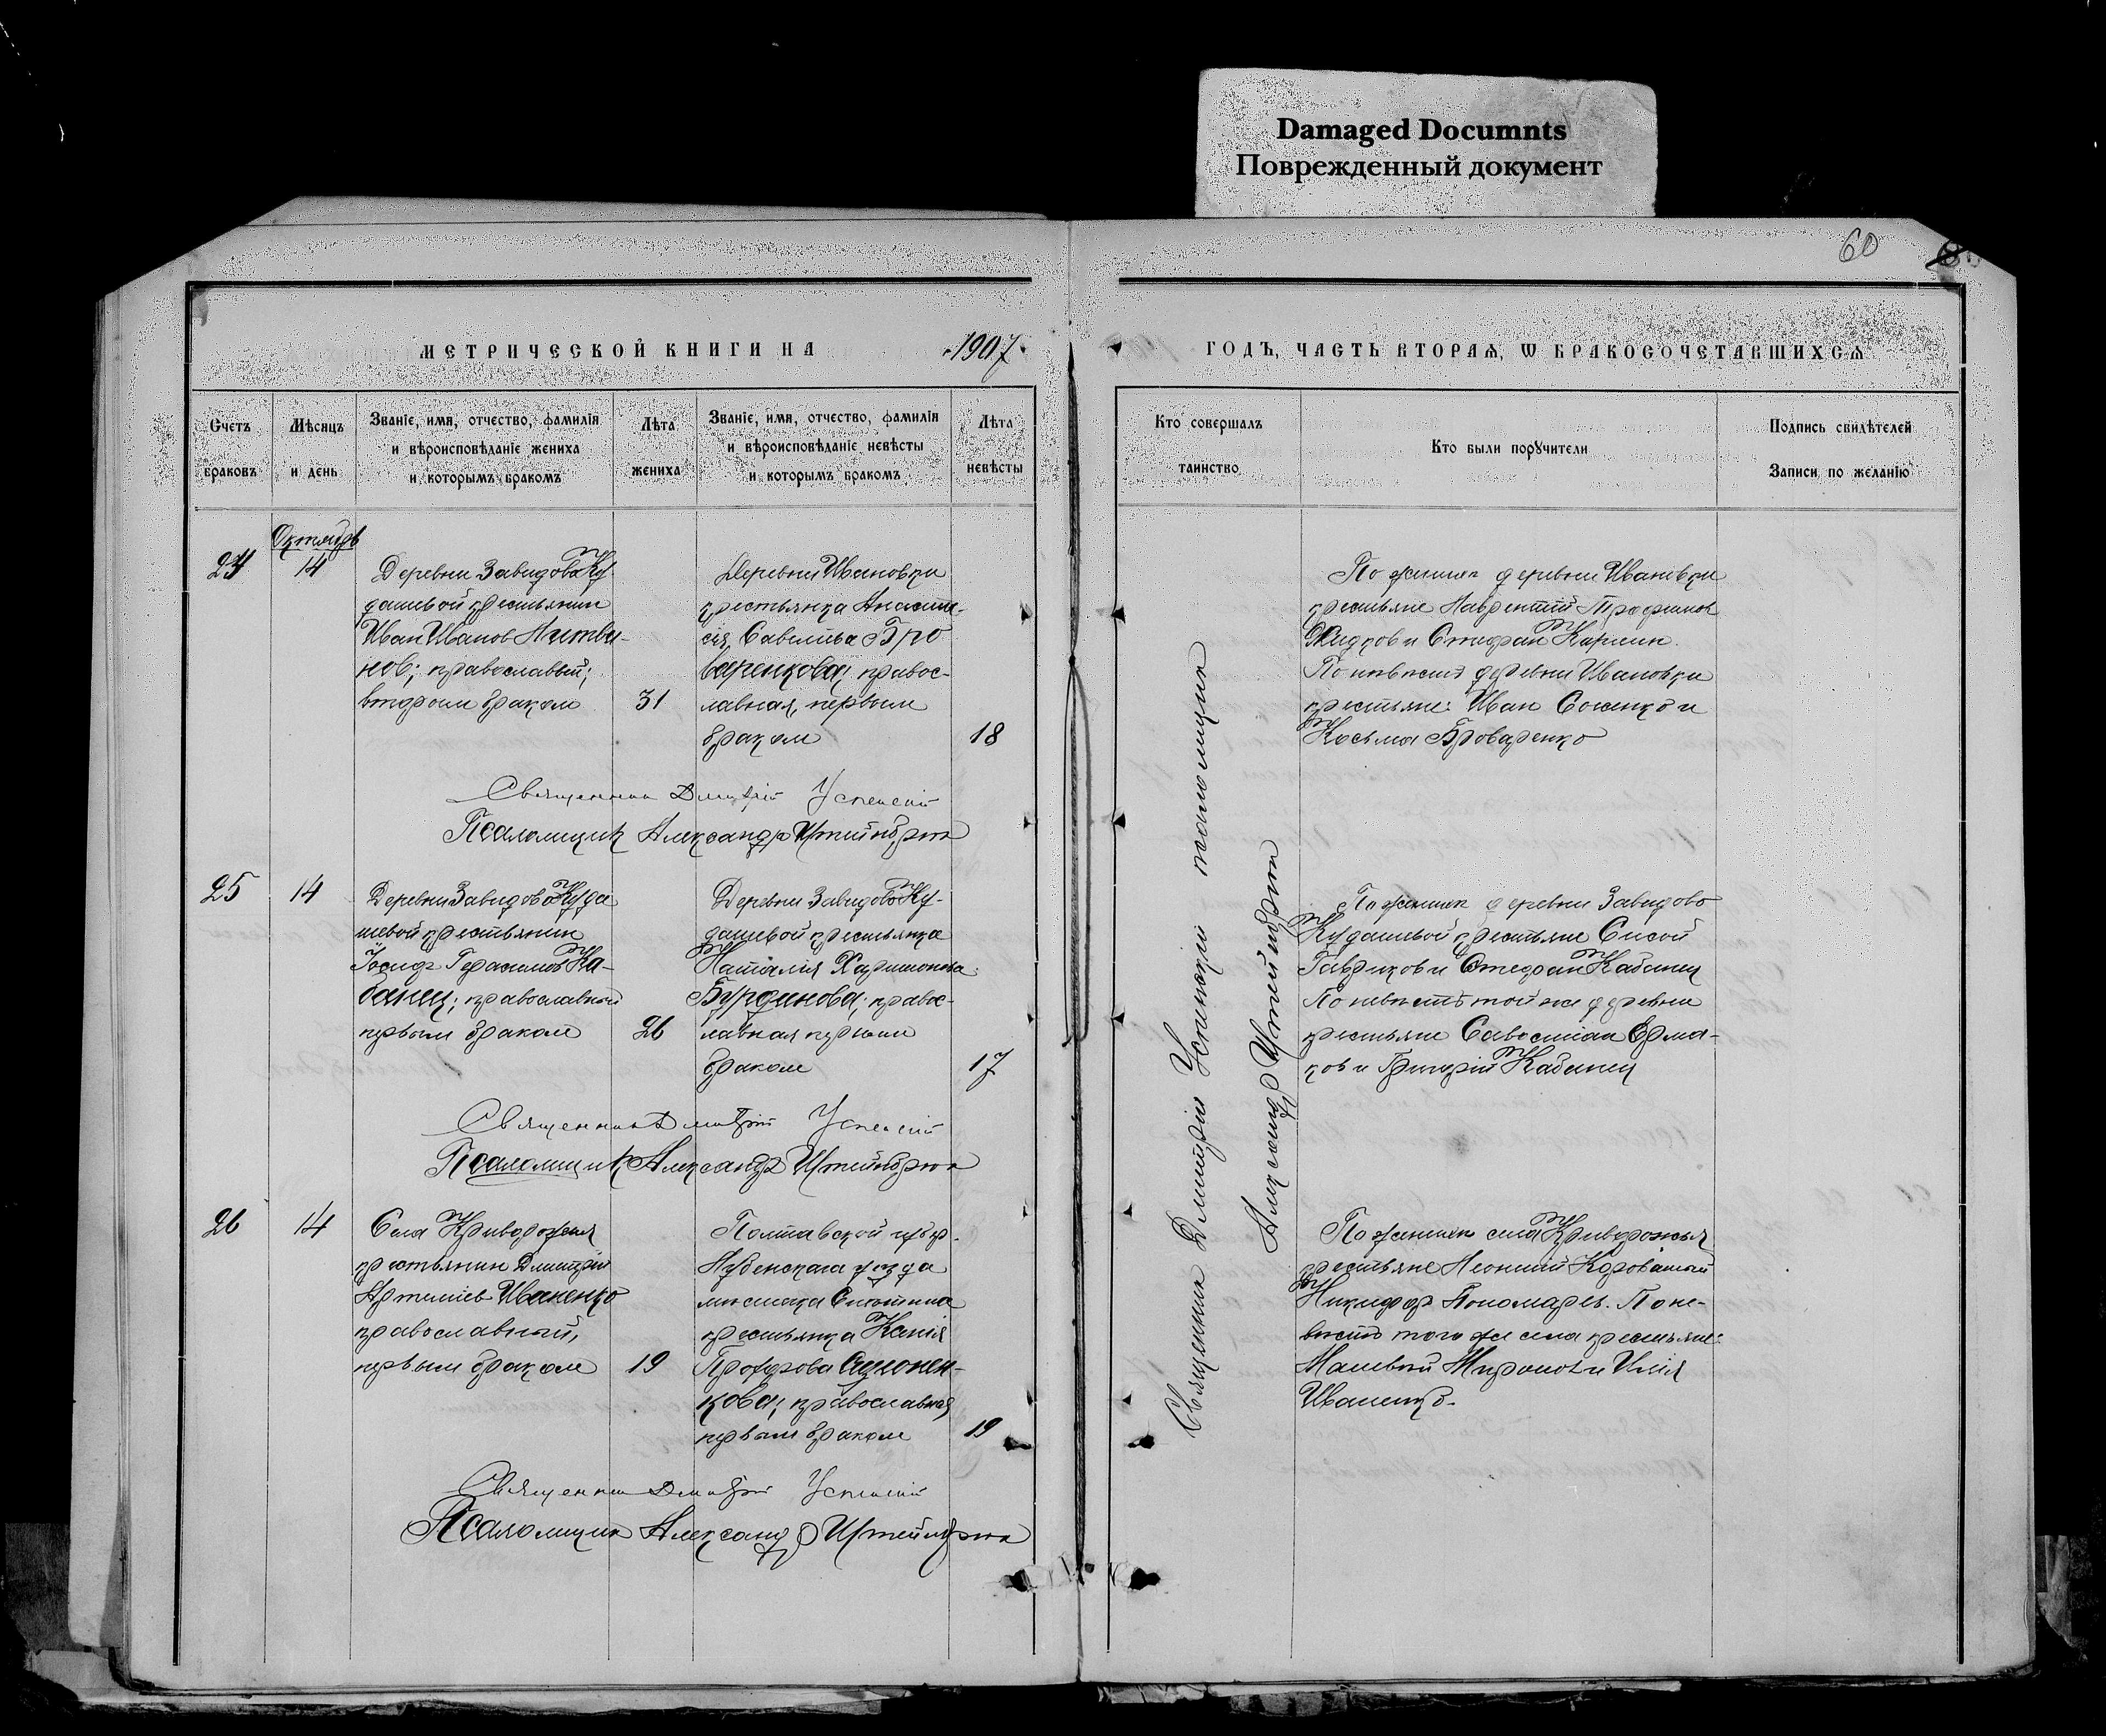 Damaged Documnts
Поврежденный документ
60
МЕТРИЧЕСКОЙ КНИГИ НА 1907
ГОДЪ, ЧАСТЬ ВТОРАЯ, Ѡ БРАКОСОЧЕТАВШИХСЯ
Счетъ браковъ
Мѣсяцъ и день
Званіе, имя, отчество, фамилія
и вѣроисповѣданіе жениха
и которымъ бракомъ
Лѣта жениха
Званіе, имя, отчество, фамилія
и вѣроисповѣданіе невѣсты
и которымъ бракомъ
Лѣта невѣсты
Кто совершалъ таинство
Кто были порꙋчители
Подпись свидѣтелей
Записи по желанію
Октябрь
24
14
Деревни Завидово Ку
дашевой крестьянин
Иван Иванов Литви-
нов; православный;
вторым браком
31
Деревни Ивановки
крестьянка Анаста-
сія Савельева Бро
варенкова; правос-
лавная, первым
браком
18
По женихе деревни Ивановки
крестьяне Лаврентий Трофимов
Жидков и Стефан Карпин.
По невесте деревни Ивановки
крестьяне: Иван Соненко и
Косьма Броваренко
Священник Дмитрій Успенскій
Псаломщик Александр Штейнбрюк
25
14
Деревни Завидово Куда
шевой крестьянин
Іосиф Герасимов Ка-
банец; православный
первым браком
26
Деревни Завидово Ку-
дашевой крестьянка
Наталія Харитонова
Бурдинова; правос-
лавная первым
браком
17
По женихе деревни Завидово
Кудашевой крестьяне Сысой
Гавриков и Стефан Кабанец
По невесте той же деревни
крестьяне Савостіан Ерма-
ков и Григорій Кабанец
Священник Дмитрій Успенскій
Псаломщик Александр Штейнбрюк
26
14
Села Криворожья
крестьянин Дмитрій
Артеміев Иваненко
православный,
первым браком
19
Полтавской губер.
Лубенскаго уезда
местечка Снетина
крестьянка
Прохорова
кова; православная
первым браком
19
По женихе села Криворожья
крестьяне Леонтий Короватый
Никифор Пономарев. По не-
весте того же села крестьяне:
Матвей Миронов и Илія
Иваненко.
Священник Дмитрій Успенскій
Псаломщик Александр Штейнбрюк
Священник Дмитрій Успенскій псаломщик
Александр Штейнбрюк